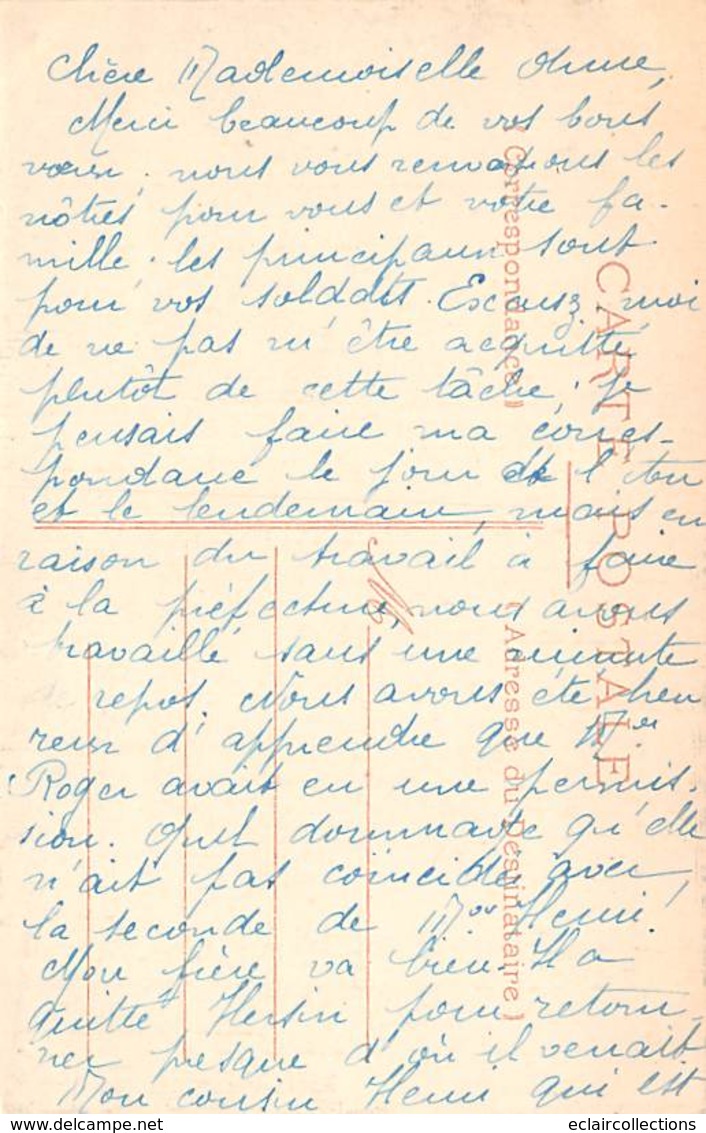 Chère Mademoiselle Anne,
Merci beaucoup de vos bons
vœux, nous vous renvoyons les
nôtres pour vous et votre fa-
mille. les principaux sont
pour vos soldats. Excusez moi
de ne pas m'être acquitté
plutôt de cette tâche, je
pensais faire ma corres-
pondance le jour de l'An
et le lendemain, mais en
raison du travail à faire
à la préfecture, nous avons
travaillé sans une minute
de repos. Nous avons été heu
reux d'apprendre que Mr
Roger avait eu une permis-
sion. Quel dommage qu'elle
n'ait pas coïncidé avec
la seconde de Mr Henri.
Mon frère va bien. Il a
quitté Hersin pour retour-
ner presque d'où il venait.
Mon cousin Henri qui est
CARTE POSTALE
(Correspondance)
(Adresse du Destinataire)
M
eclaircollections.com